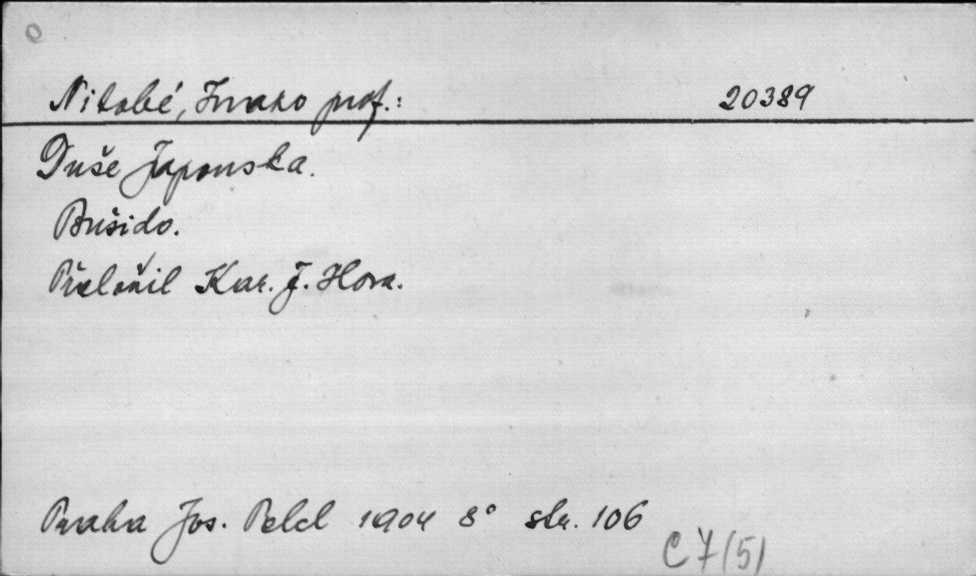 Nitobé, Inazo prof.: 20389
Duše Japonska.
Bušido.
Přeložil Kar. J. Hora.
Praha Jos. Pelcl 1904 8° str. 106
C 7/5/